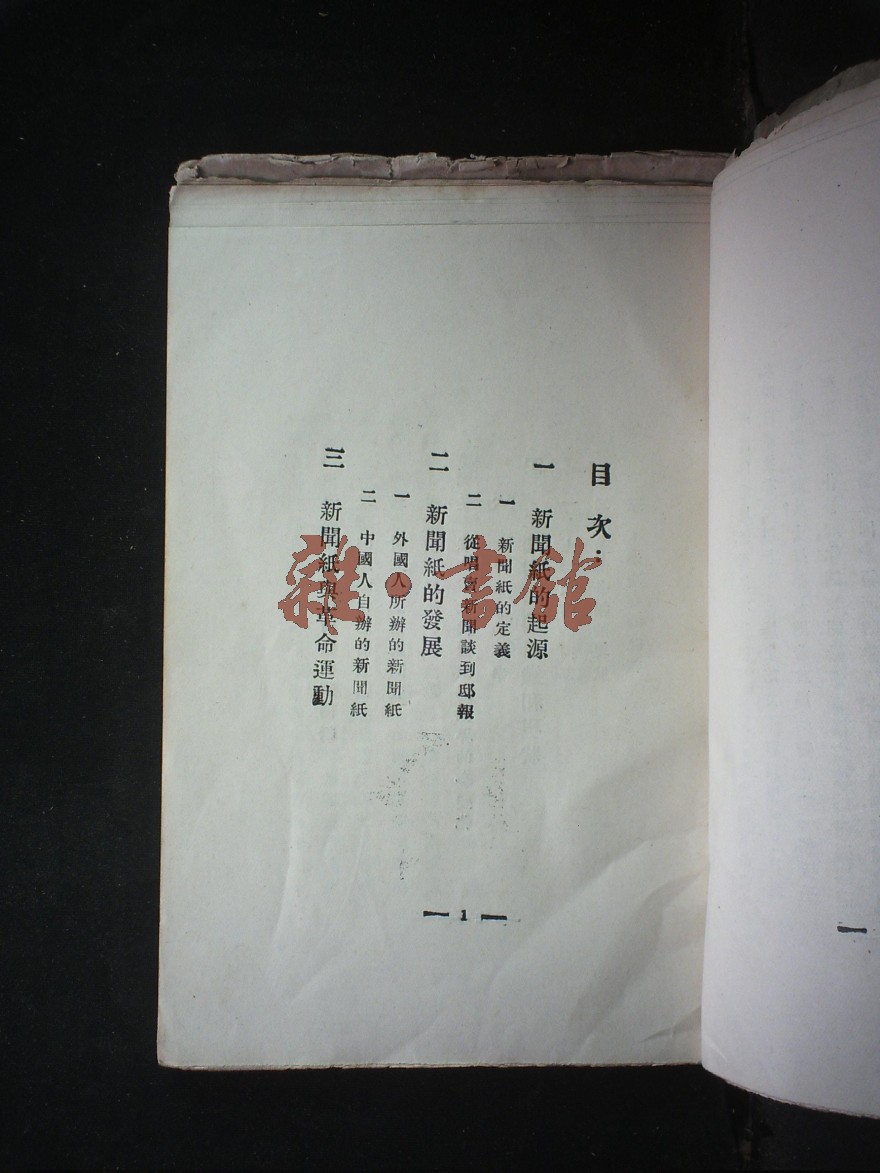 目次
一 新聞紙的起源
一 新聞紙的定義
二 從唱賣新聞談到邸報
二 新聞紙的發展
一 外國人所辦的新聞紙
二 中國人自辦的新聞紙
三 新聞紙與革命運動
— 1 —
雜·書館